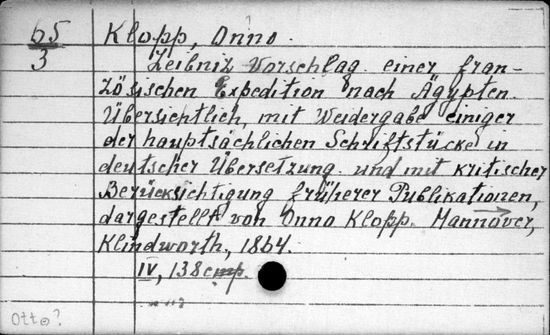 65
3
Klopp, Onno.
Leibniz Vorschlag einer fran-
zösischen Expedition nach Ägypten.
Übersichtlich, mit Weidergabe einiger
der hauptsächlichen Schriftstücke in
deutscher Übersetzung und mit kritischer
Berücksichtigung früherer Publikationen,
dargestellt von Onno Klopp. Hannover,
Klindworth, 1864.
IV, 138 стр.
Otto?